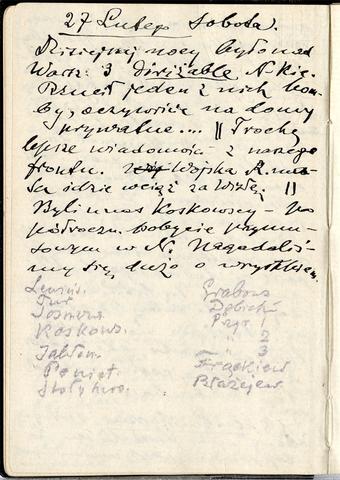 27 Lutego Sobota.
Dzisiejszej nocy było nad
Warsz. 3 diriżable N-kie.
Rzucił jeden z nich bom-
by, oczywiście na domy
prywatne.... || Trochę
lepsze wiadomości z naszego
frontu. Wojska R.
idzie wciąż za Wisłę. ||
Byli u nas Koskowscy - po
półroczn. pobycie przymu-
sowym w N. Nagadaliś-
my się dużo o wszystkiem.
Tur
Koskows.
Jabłon.
Poniat.
Stołyhwo.
Grabows
Dębicki
1
" 2
" 3
Frąckiew
Błażejew.